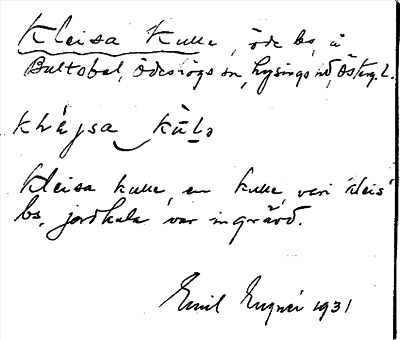 Kleisa Kulle, öde bs, å
Bultsbol, Ödeshögs sn, Lysings hd, Österg. L.
Kleisa kulle, en kulle, vari Kleis'
bs, jordkula var ingrävd.
Emil 1931